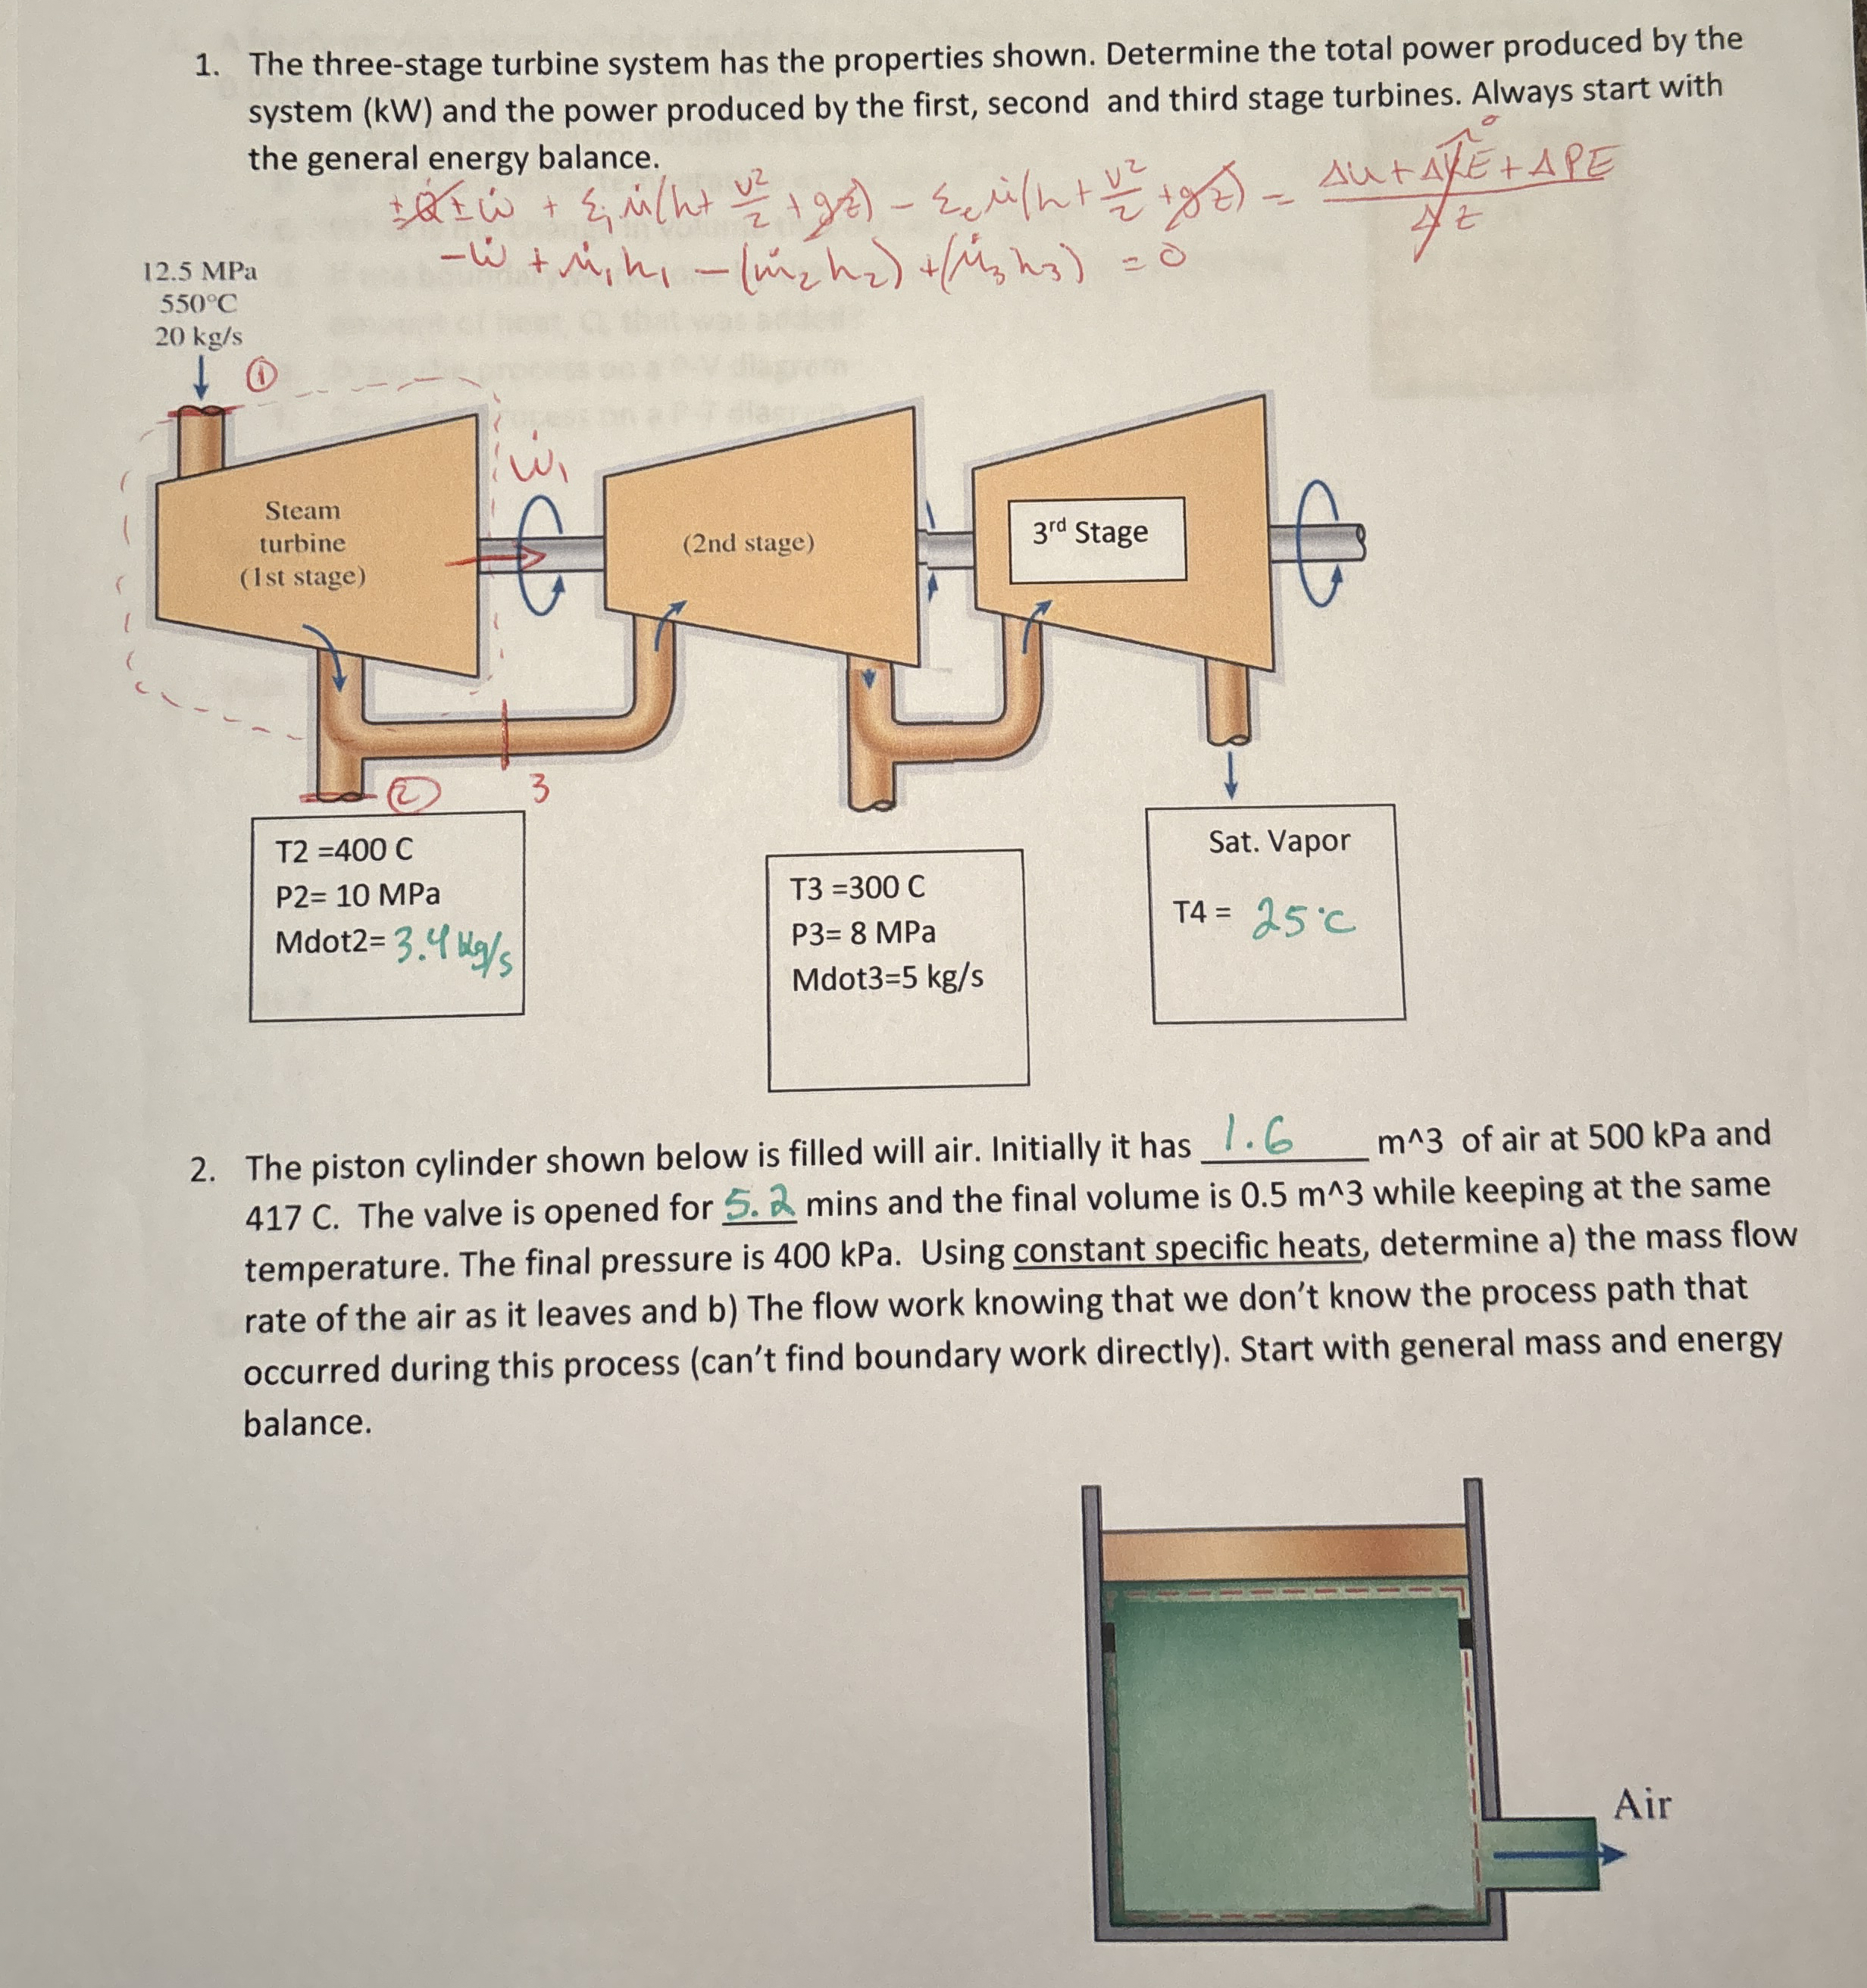 1. The three-stage turbine system has the properties shown. Determine the total power produced by the
system (kW) and the power produced by the first, second and third stage turbines. Always start with
the general energy balance.
±Q̇ ± ẇ + Σᵢ ṁ(h + v²/2 + gz) - Σₑ ṁ(h + v²/2 + gz) = (Δu + ΔKE + ΔPE)/Δt
-ẇ + ṁ₁h₁ - (ṁ₂h₂) + (ṁ₃h₃) = 0
12.5 MPa
550°C
20 kg/s
①
ẇ₁
Steam
turbine
(1st stage)
(2nd stage)
3rd Stage
② 3
T2 =400 C
P2= 10 MPa
Mdot2= 3.4 kg/s
T3 =300 C
P3= 8 MPa
Mdot3=5 kg/s
Sat. Vapor
T4 = 25°C
2. The piston cylinder shown below is filled will air. Initially it has 1.6 m^3 of air at 500 kPa and
417 C. The valve is opened for 5.2 mins and the final volume is 0.5 m^3 while keeping at the same
temperature. The final pressure is 400 kPa. Using constant specific heats, determine a) the mass flow
rate of the air as it leaves and b) The flow work knowing that we don't know the process path that
occurred during this process (can't find boundary work directly). Start with general mass and energy
balance.
Air